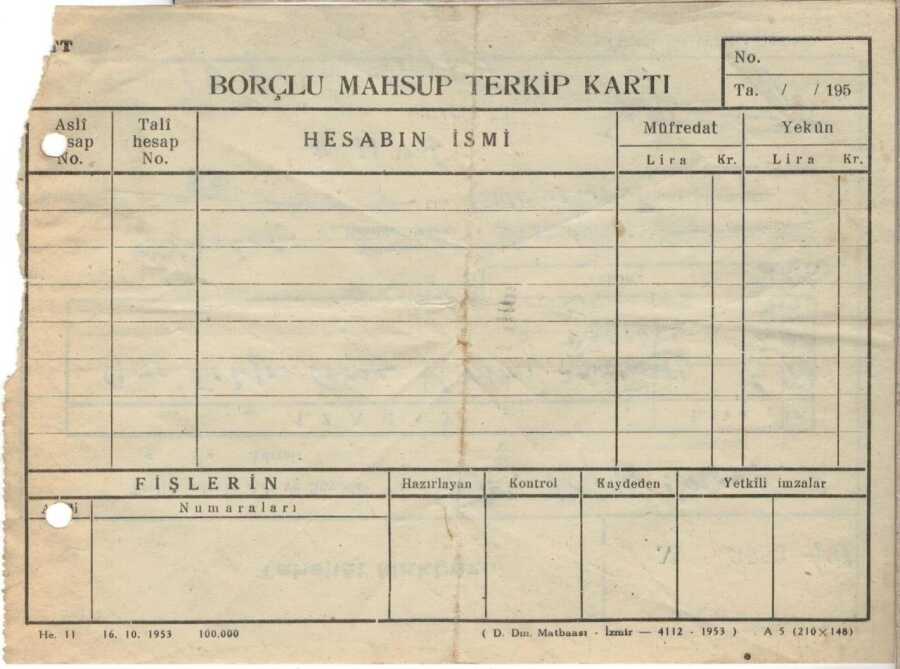 No.
BORÇLU MAHSUP TERKİP KARTI
Ta. / / 195
Aslî hesap No.
Talî hesap No.
HESABIN İSMİ
Müfredat
Yekûn
Lira Kr. Lira Kr.
FİŞLERİN
Hazırlayan Kontrol Kaydeden Yetkili imzalar
Numaraları
He. 11 16. 10. 1953 100.000 ( D. Dm. Matbaası - İzmir — 4112 - 1953 ) A 5 (210×148)